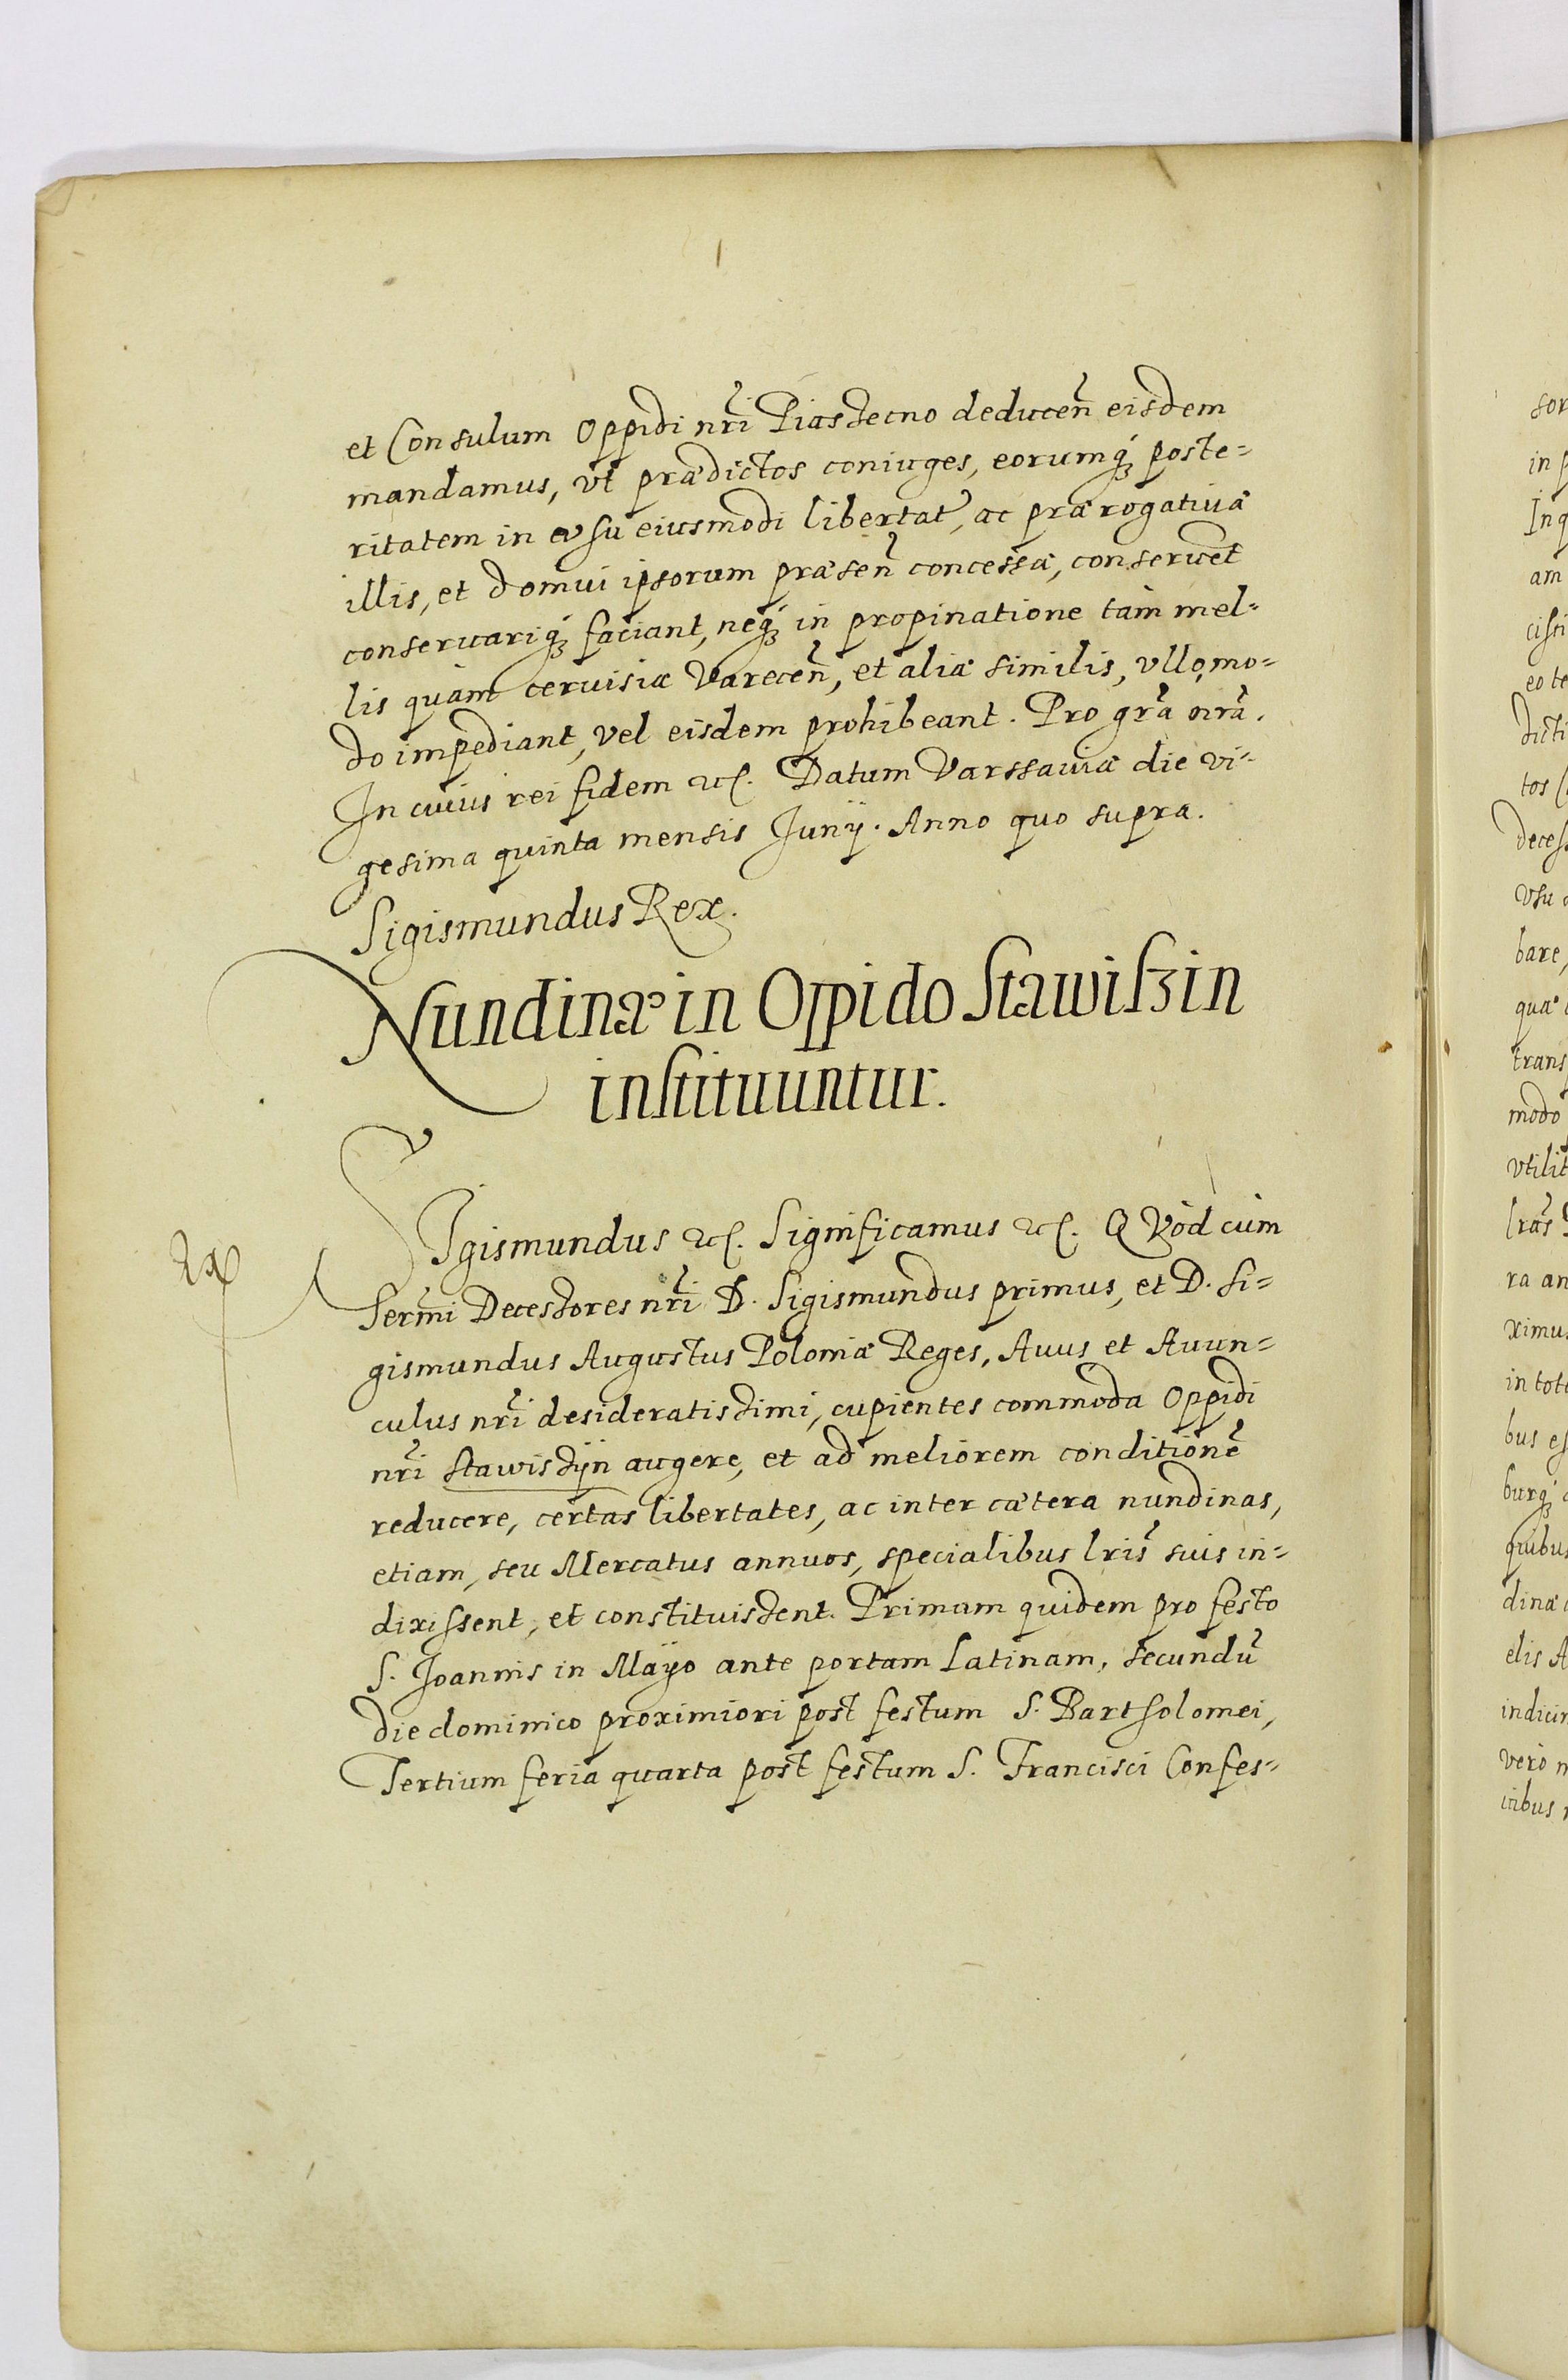 et Consulum Oppidi nr̃i Piassecno deducen̄ eisdem
mandamus, vt prædictos coniuges, eorumq́ȝ poste=
ritatem in vsu eiusmodi libertat̃, ac prærogatiuæ
illis, et domui ipsorum præsen̄ concessæ, conseruẽt
conseruariq́ȝ faciant, neq́ȝ in propinatione tàm mel=
lis quàm ceruisiæ Varecen̄, et aliæ similis, vllo mo=
do impediant, vel eisdem prohibeant. Pro gr̃a nr̃a.
In cuius rei fidem etc. Datum Varssauiæ die vi=
gesima quinta mensis Junij. Anno quo supra.
Sigismundus Rex.
Nundinæ in Oppido Stawiszin
instituuntur.
SIgismundus etc. Significamus etc. QVòd cùm
Serm̃i Decessores nr̃i D. Sigismundus primus, et D. Si=
gismundus Augustus Poloniæ Reges, Auus et Auun=
culus nr̃i desideratissimi, cupientes commoda Oppidi
nr̃i Stawissÿn augere, et ad meliorem conditionẽ
reducere, certas libertates, ac inter cætera nundinas,
etiam, seu Mercatus annuos, specialibus lr̃is suis in=
dixissent, et constituissent. Primam quidem pro festo
S. Joannis in Maÿo ante portam Latinam, secundũ
die dominico proximiori post festum S. Bartholomei,
Tertium feria quarta post festum S. Francisci Confes=